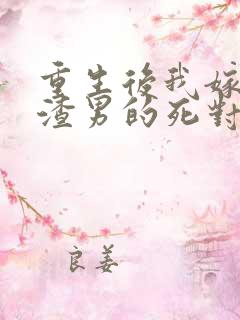 重生後我嫁
渣男的死對
良姜